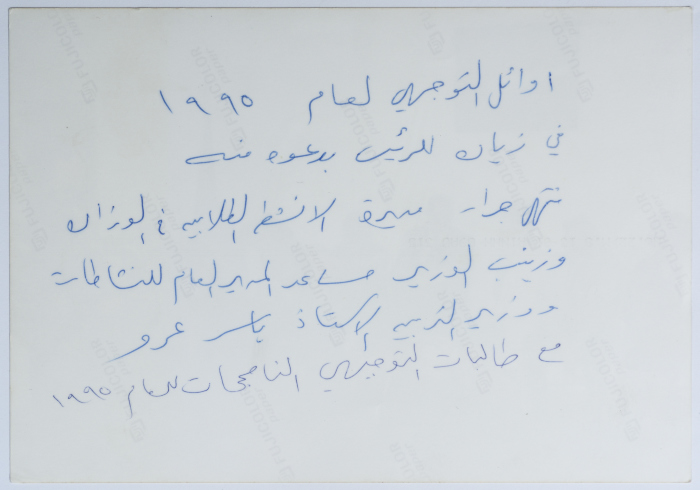 اوائل التوجيهي لعام ١٩٩٥
في زياره للرئيس بدعوه منه
جرار مديرة الانشطه الطلابيه في الوزاره
وزينب الوزير مساعد المدير العام للنشاطات
ووزير التربيه الاستاذ ياسر عمرو
مع طالبات التوجيهي الناجحات للعام ١٩٩٥